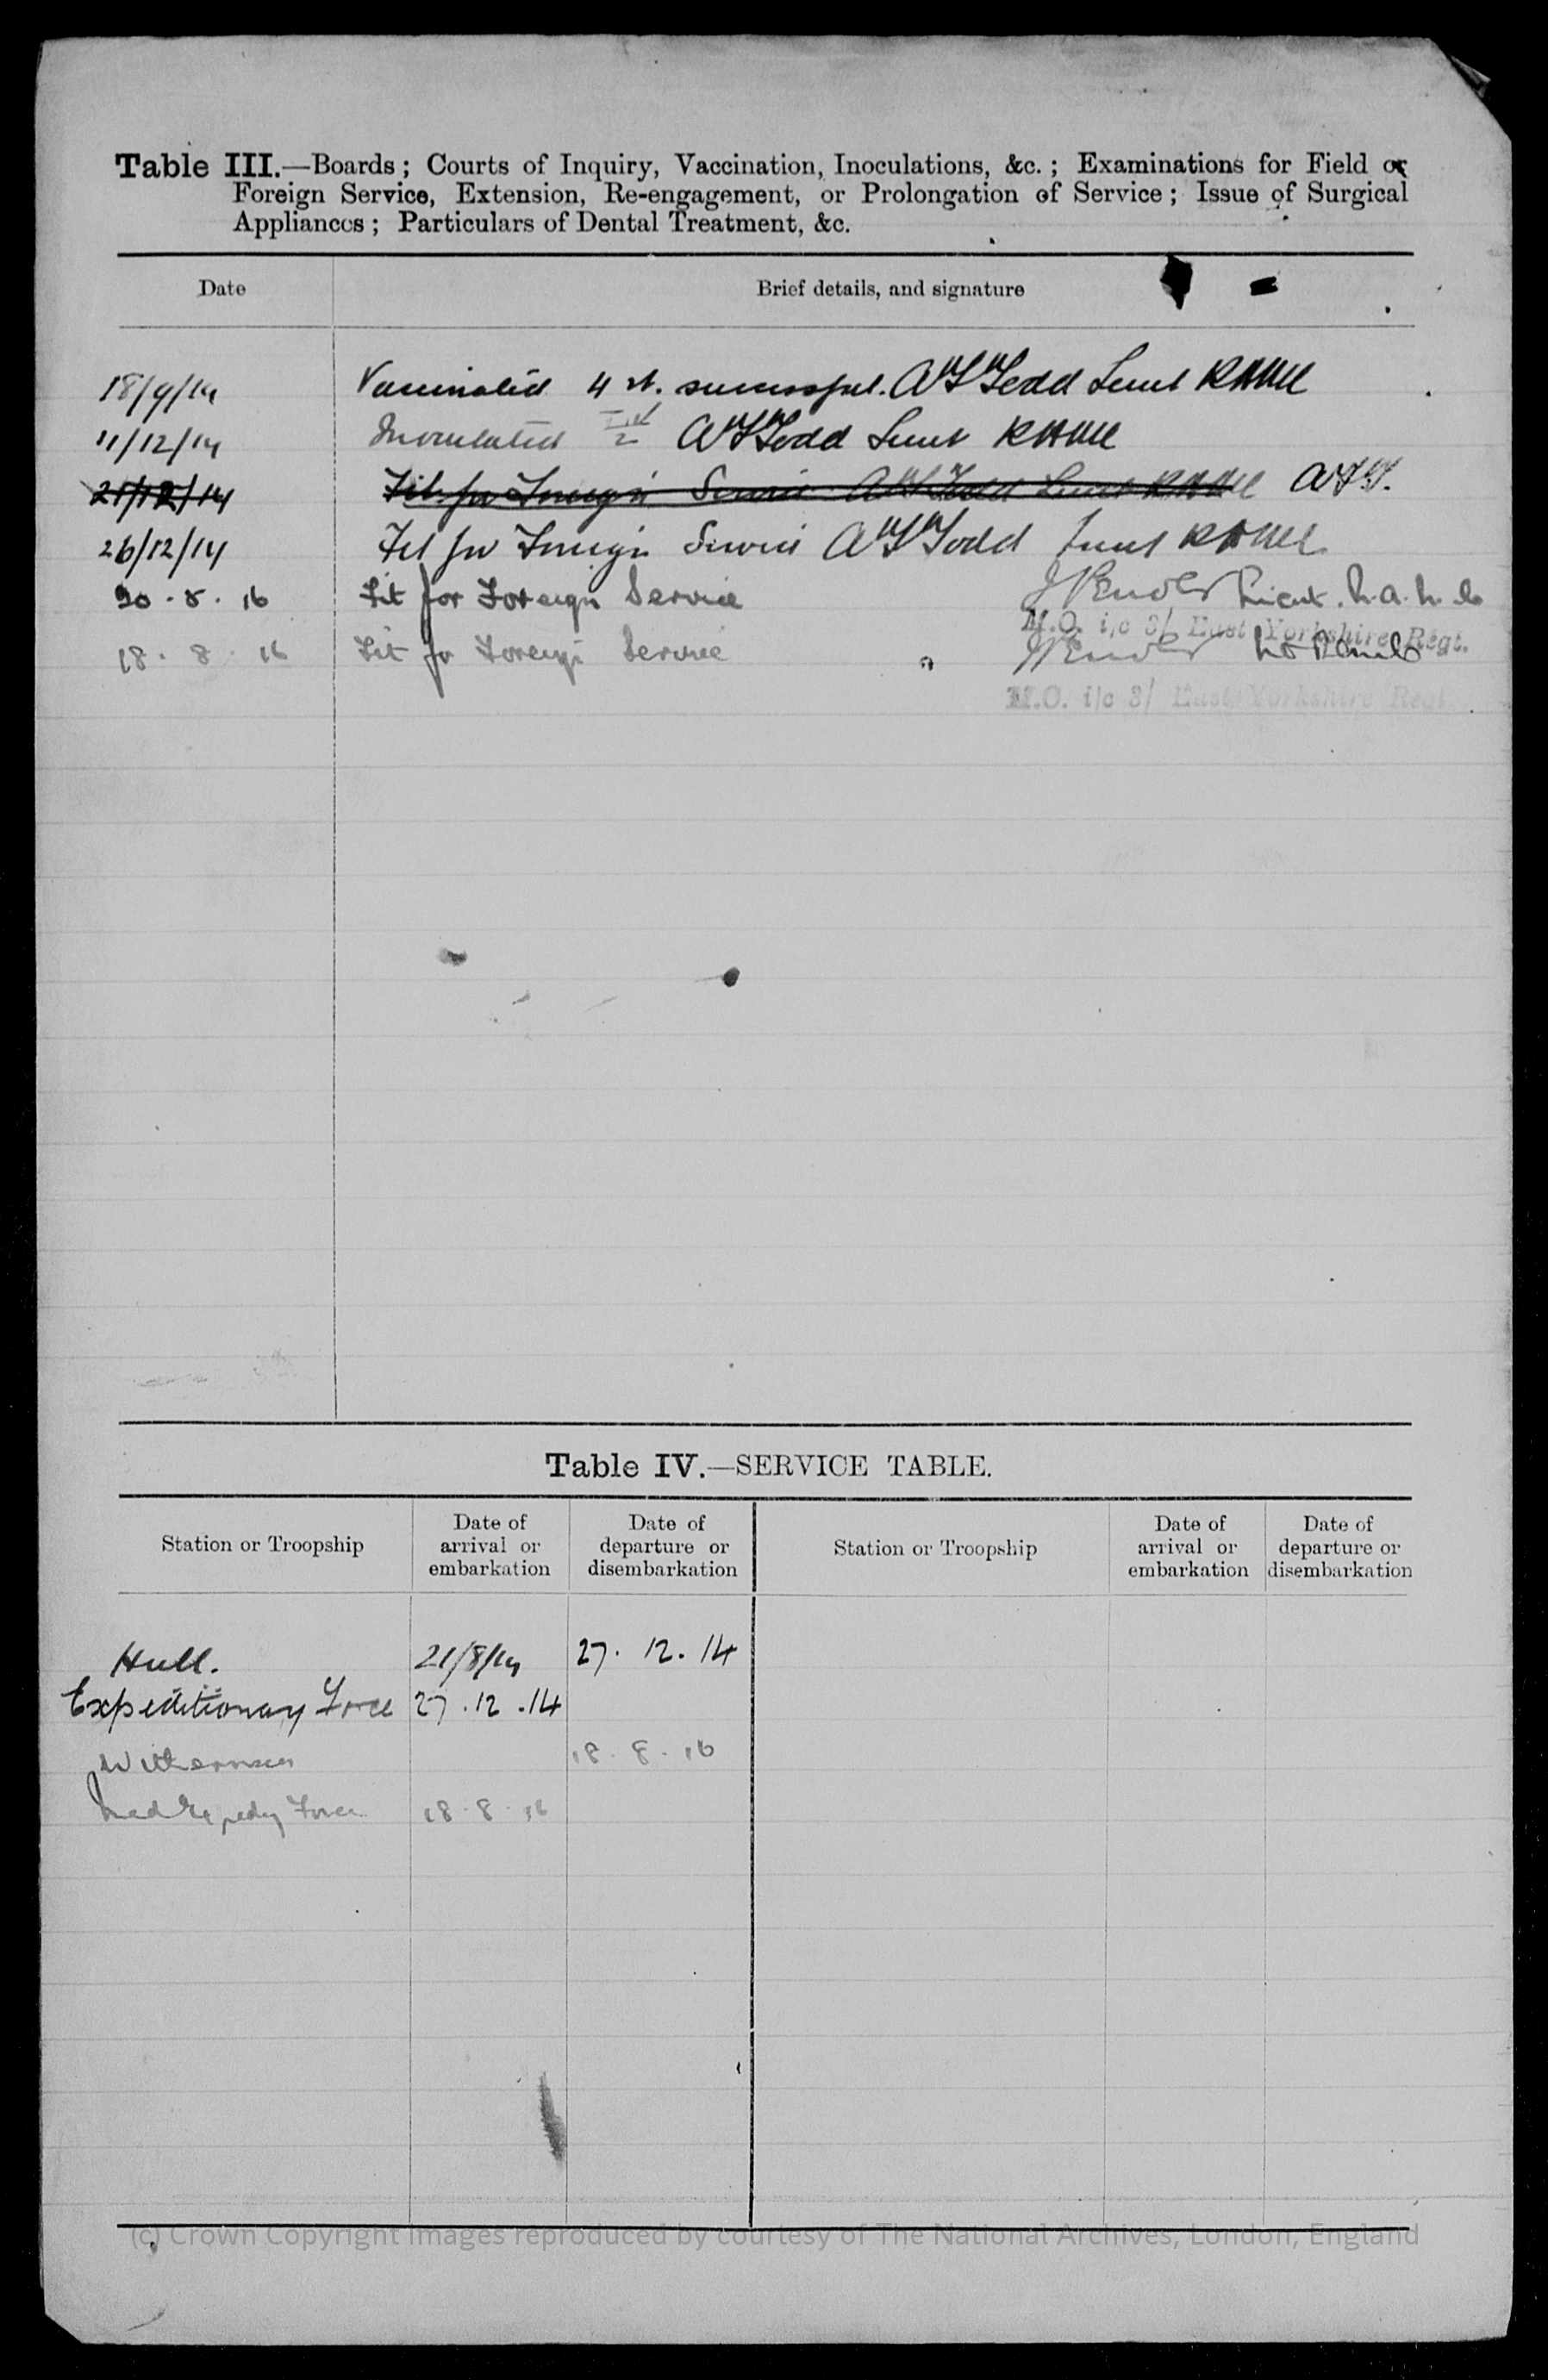 Table III.—Boards; Courts of Inquiry, Vaccination, Inoculations, &c.; Examinations for Field or
Foreign Service, Extension, Re-engagement, or Prolongation of Service; Issue of Surgical
Appliances; Particulars of Dental Treatment, &c.
Date Brief details, and signature
18/9/14 Vaccinated 4 successful. A W S Todd Lieut RAMC
11/12/14 Inoculated A W S Todd Lieut RAMC
21/12/14 Fit for Foreign Service Todd Lieut RAMC
26/12/14 Fit for Foreign Service Todd Lieut RAMC
16 Fit for Foreign Service Lieut. R.a.m.c
M.O. i/c 3/ East Yorkshire Regt.
18.8.16 Fit for Foreign Service
M.O. i/c 3/ East Yorkshire Regt
Table IV.—SERVICE TABLE.
Station or Troopship Date of arrival or embarkation Date of departure or disembarkation Station or Troopship Date of arrival or embarkation Date of departure or disembarkation
Hull. 21/8/14 27.12.14
Expeditionary Force 27.12.14
Withernsea 18.8.16
Med Expedy Force 18.8.16
(c) Crown Copyright Images reproduced by courtesy of The National Archives, London, England